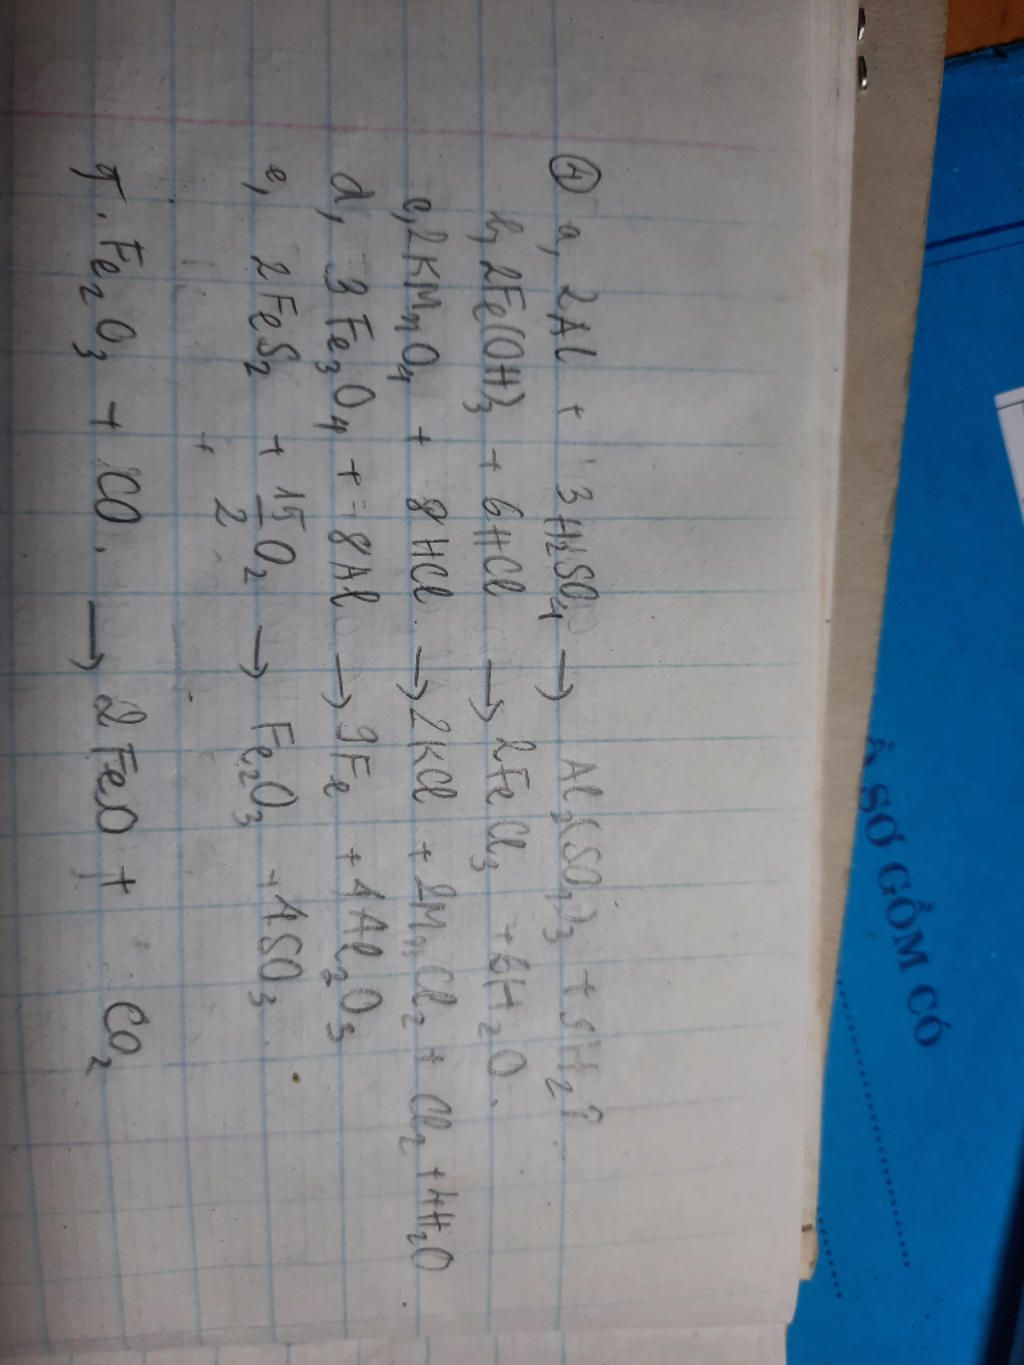 ① a, 2Al + 3H₂SO₄ → Al₂(SO₄)₃ + 3H₂↑
b, 2Fe(OH)₃ + 6HCl → 2FeCl₃ + 6H₂O.
c, 2KMnO₄ + 8HCl → 2KCl + 2MnCl₂ + Cl₂ + 4H₂O
d, 3Fe₃O₄ + 8Al → 9Fe + 4Al₂O₃
e, 2FeS₂ + 15/2 O₂ → Fe₂O₃ + 4SO₃
+
f. Fe₂O₃ + CO. → 2FeO + CO₂
SƠ GỒM CÓ